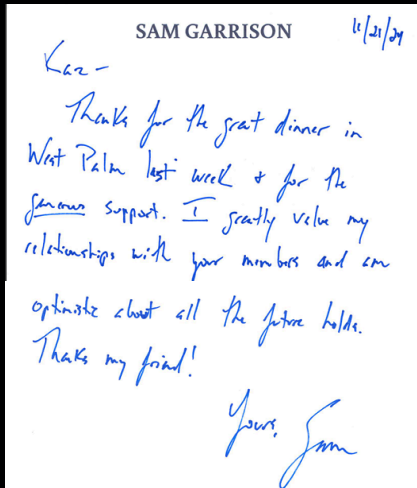 SAM GARRISON
11/21/24
Kaz-
Thanks for the great dinner in
West Palm last week & for the
generous support. I greatly value my
relationships with your members and am
optimistic about all the future holds.
Thanks my friend!
Yours,
Sam